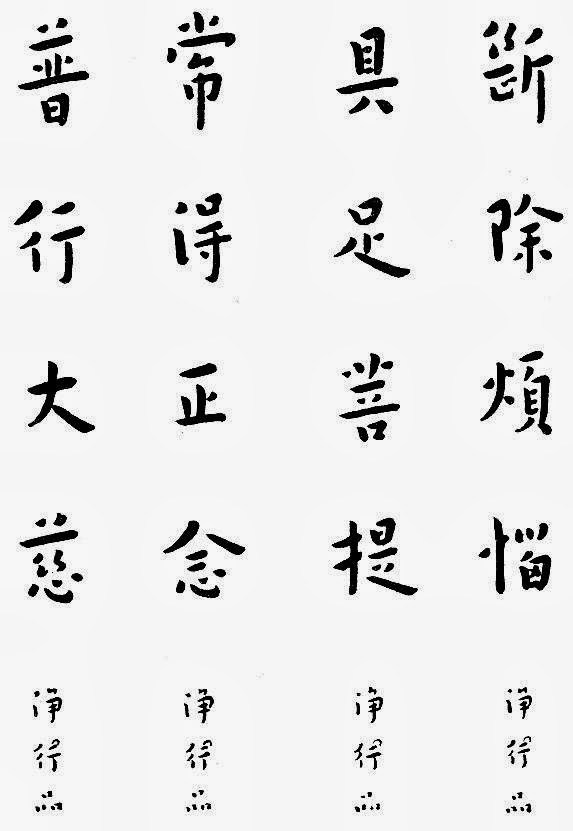 斷除煩惱
淨行品
具足菩提
淨行品
常得正念
淨行品
普行大慈
淨行品